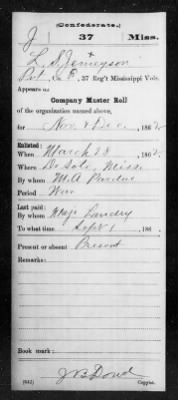 (Confederate.)
J 37 Miss.
L. S. Jimeyson
Pvt, Co. E, 37 Reg't Mississippi Vols.
Appears on
Company Muster Roll
of the organization named above,
for Nov. & Dec., 1862.
Enlisted:
When March 28, 186
Where De Soto, Miss.
By whom M.A. Pardue
Period War
Last paid:
By whom Maj. Landry
To what time Sept 1, 186
Present or absent Present
Remarks:
Book mark:
(642) J B Dowd
Copyist.